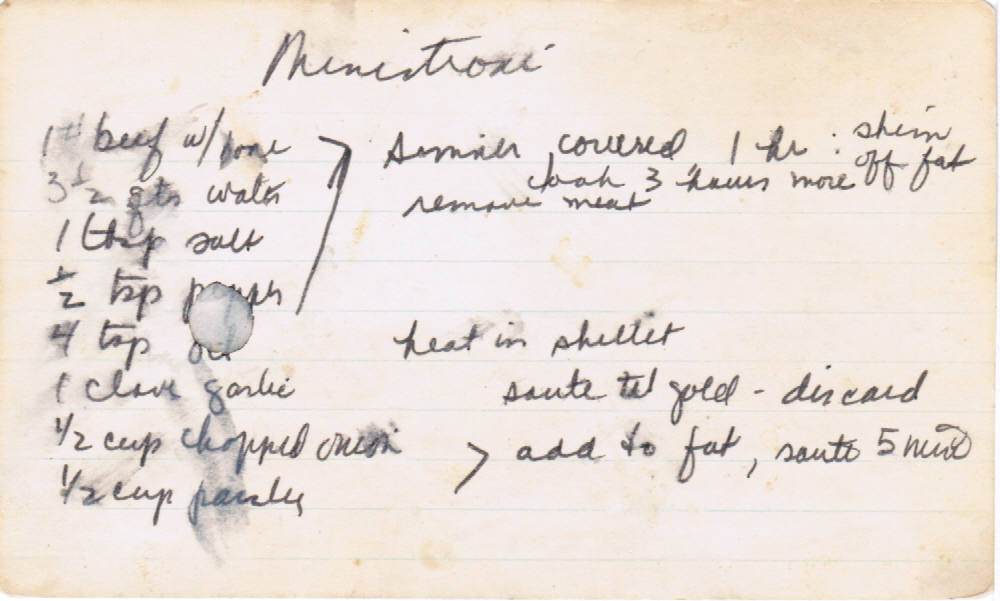 Ministroni
1# beef w/bone > simmer covered 1 hr : skim off fat
3 1/2 qts water cook 3 hours more
remove meat
1 tbsp salt
1/2 tsp pepper
4 tsp oil heat in skillet
1 clove garlic saute til gold - discard
1/2 cup chopped onion > add to fat, saute 5 min
1/2 cup parsley